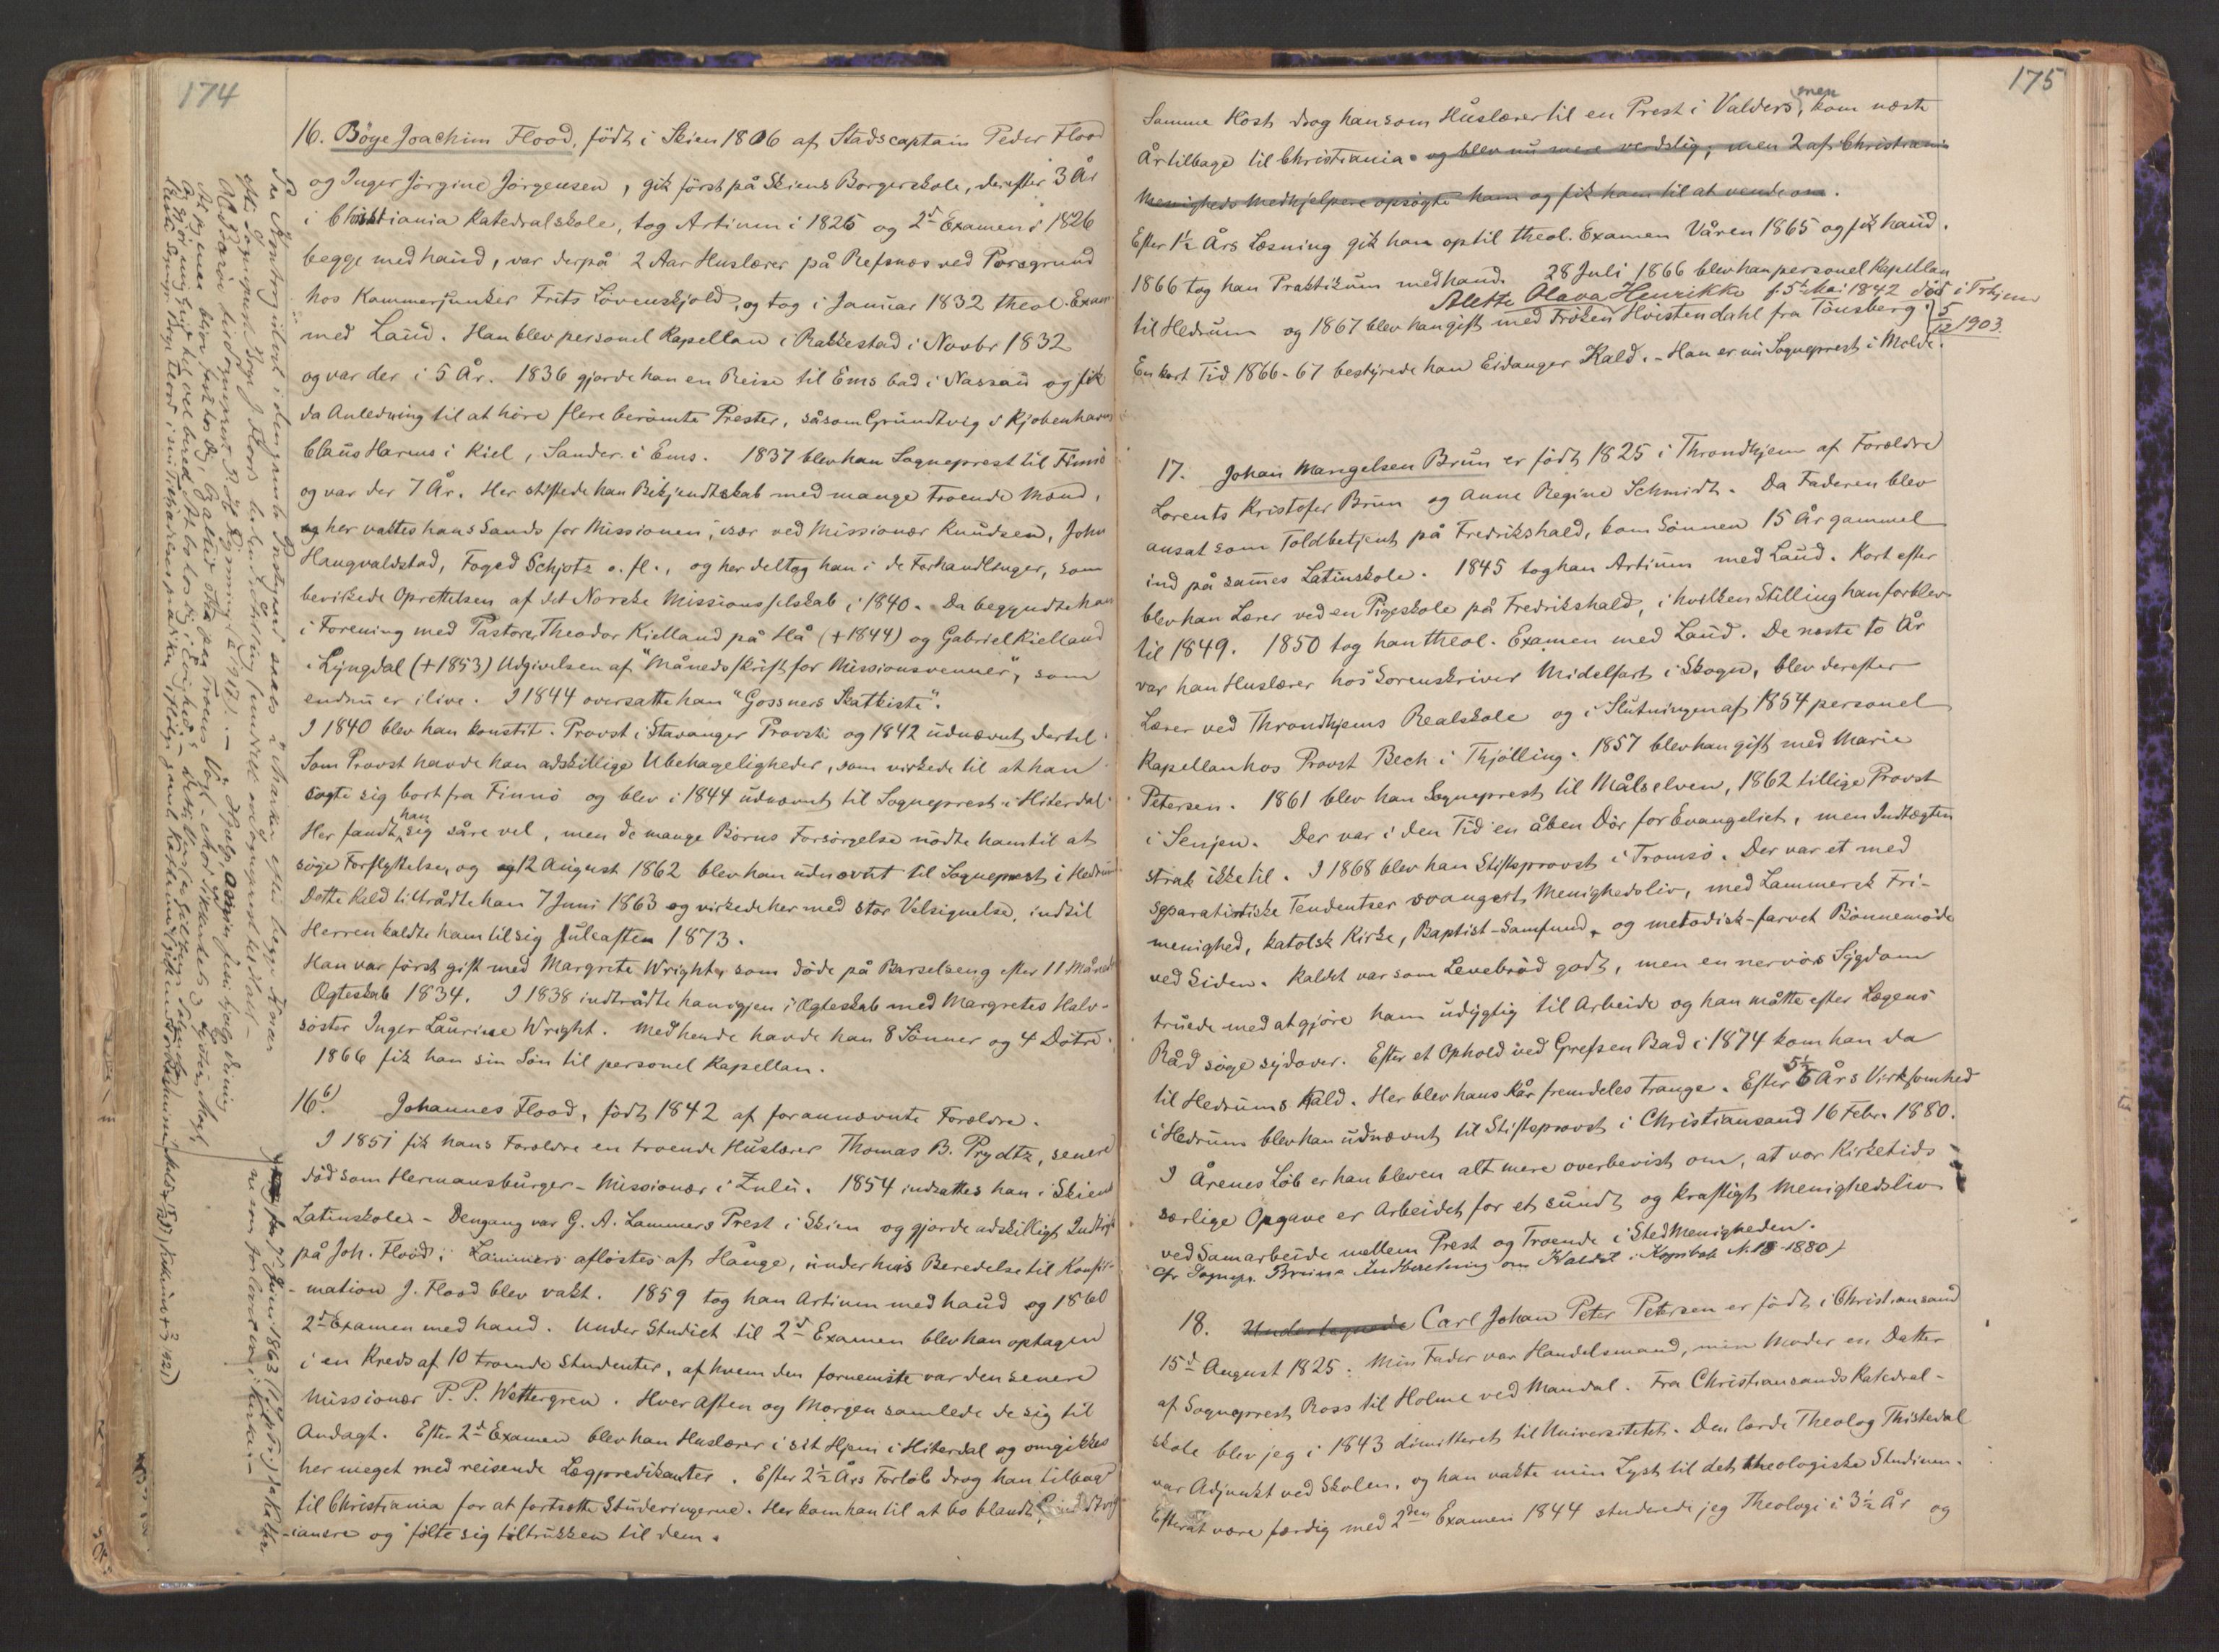 174
16. Böye Joachim Flood, födt i Skien 1806 af Stadscaptain Peder Flood
og Inger Jörgine Jörgensen, gik först på Skiens Borgerskole, derefter 3 År
i Christiania Katedralskole, tog Artium i 1825 og 2d Examen i 1826
begge med haud, var derpå 2 Aar Huslærer på Refsnæs ved Porsgrund
hos Kammerjunker Frits Lövenskjold, og tog i Januar 1832 theol. Exam
med Laud. Han blev personel Kapellan i Rakkestad i Novbr 1832
og var der i 5 År. 1836 gjorde han en Reise til Ems bad i Nassau og fik
da Anledning til at höre flere berömte Prester, såsom Grundtvig i Kjöbenhavn
Claus Harms i Kiel, Sander i Ems. 1837 blev han Sogneprest til Finnö
og var der 7 År. Her stiftede han Bekjendtskab med mange troende Mænd,
og her vaktes hans Sands for Missionen, især ved Missionær Knudsen, John
Haugvaldstad, Foged Schjötz o. fl., og her deltog han i de Forhandlinger, som
bevirkede Oprettelsen af det Norske Missionsselskab i 1840. Da begyndte han
i Forening med Pastore Theodor Kielland på Hå (+1844) og Gabriel Kielland
i Lyngdal (+1853) Udgivelsen af "Månedsskrift for Missionsvenner", som
endnu er ilive. I 1844 oversatte han "Gossners Skatkiste".
I 1840 blev han konstit. Provst i Stavanger Provsti og 1842 udnævnt dertil.
Som Provst havde han adskillige Ubehageligheder, som virkede til at han
sögte sig bort fra Finnö og blev i 1844 udnævnt til Sogneprest i Hiterdal.
Her fandt han sig såre vel, men de mange Börns Forsörgelse nödte ham til at
söge Forflyttelse, og 12 August 1862 blev han udnævnt til Sogneprest i Hedrum
Dette Kald tiltrådte han 7 Juni 1863 og virkede her med stor Velsignelse, indtil
Herren kaldte ham til sig Juleaften 1873.
Han var först gift med Margrete Wright, som döde på Barselseng efter 11 Måneds
Ægteskab 1834. I 1838 indtrådte han igjen i Ægteskab med Margretes Halv-
söster Inger Laurine Wright. Med hende havde han 8 Sönner og 4 Dötre.
1866 fik han sin Sön til personel Kapellan.
16 b) Johannes Flood, födt 1842 af forannævnte Forældre.
I 1851 fik hans Forældre en troende Huslærer Thomas B. Prydtz, senere
död som Hermansburger-Missionær i Zulu. 1854 indsattes han i Skiens
Latinskole - Dengang var G. A. Lammers Prest i Skien og gjorde adskilligt Indtryk
på Joh. Flood. Lammers aflöstes af Hauge, under hvis Beredelse til Konfir-
-mation J. Flood blev vakt. 1859 tog han Artium med haud og 1860
2d Examen med haud. Under Studiet til 2d Examen blev han optagen
i en Kreds af 10 troende Studenter, af hvem den fornemste var den senere
Missionær P. P. Wettergren. Hver Aften og Morgen samlede de sig til
Andagt. Efter 2d Examen blev han Huslærer i sit Hjem i Hiterdal og omgikkes
her meget med reisende Lægpredikanter. Efter 2½ Års Forlöb drog han tilbage
til Christiania for at fortsætte Studeringerne. Her kom han til at bo blandt
-ianere og fölte sig tiltrukken til dem.
175
Samme Höst drog han som Huslærer til en Prest i Valders, men kom næste
År tilbage til Christiania og blev nu mere verdslig; men 2 af Christiania
Menigheds Medhjelpere opsögte ham og fik ham til at vende om.
Efter 1½ Års Læsning gik han op til theol. Examen Våren 1865 og fik haud.
1866 tog han Praktikum med haud. 28 Juli 1866 blev han personel Kapellan
Alette Olava Henrikke f. 5 Mai 1842 död i Trhjem
til Hedrum og 1867 blev han gift med Fröken Hvistendahl fra Tönsberg. 5/12 1903.
En kort Tid 1866-67 bestyrede han Eidanger Kald. - Han er nu Sogneprest i Molde.
17. Johan Mangelsen Brun er födt 1825 i Throndhjem af Forældre
Lorents Kristofer Brun og Anne Regine Schmidt. Da Faderen blev
ansat som Toldbetjent på Fredrikshald, kom Sönnen 15 År gammel
ind på sammes Latinskole. 1845 tog han Artium med Laud. Kort efter
blev han Lærer ved en Pigeskole på Fredrikshald, i hvilken Stilling han forblev
til 1849. 1850 tog han theol. Examen med Laud. De næste to År
var han Huslærer hos Sorenskriver Midelfart i Skogn, blev derefter
Lærer ved Throndhjems Realskole og i Slutningen af 1854 personel
Kapellan hos Provst Bech i Thjölling. 1857 blev han gift med Marie
Petersen. 1861 blev han Sogneprest til Målselven, 1862 tillige Provst
i Senjen. Der var i den Tid en åben Dör for Evangeliet, men Indtægten
strak ikke til. I 1868 blev han Stiftsprovst i Tromsö. Der var et med
separatistiske Tendentser svangert Menighedsliv, med Lammersk Fri-
menighed, katolsk Kirke, Baptist-Samfund, og metodisk-farvet Bönnemöde
ved Siden. Kaldet var som Levebröd godt, men en nervös Sygdom
truede med at gjöre ham udygtig til Arbeide og han måtte efter Lægens
Råd söge sydover. Efter et Ophold ved Grefsen Bad i 1874 kom han da
til Hedrums Kald. Her blev hans Kår fremdeles trange. Efter 5½ Års Virksomhed
i Hedrum blev han udnævnt til Stiftsprovst i Christiansand 16 Febr. 1880.
I Årenes Löb er han bleven alt mere overbevist om, at vor Kirketids
særlige Opgave er Arbeidet for et sundt og kraftigt Menighedsliv
ved Samarbeide mellem Prest og Troende i Stedmenigheden.
cfr Sognepr. Bruns Indberetning om Kaldet i Kopibok N. 18-1880)
18. Undertegnede Carl Johan Peter Petersen er födt i Christiansand
15d August 1825. Min Fader var Handelsmand, min Moder en Datter
af Sogneprest Ross til Holme ved Mandal. Fra Christiansands Katedral-
skole blev jeg i 1843 dimitteret til Universitetet. Den lærde Theolog Thistedal
var Adjunkt ved Skolen, og han vakte min Lyst til det theologiske Studium.
Efter at være færdig med 2den Examen 1844 studerede jeg Theologi i 3½ År og